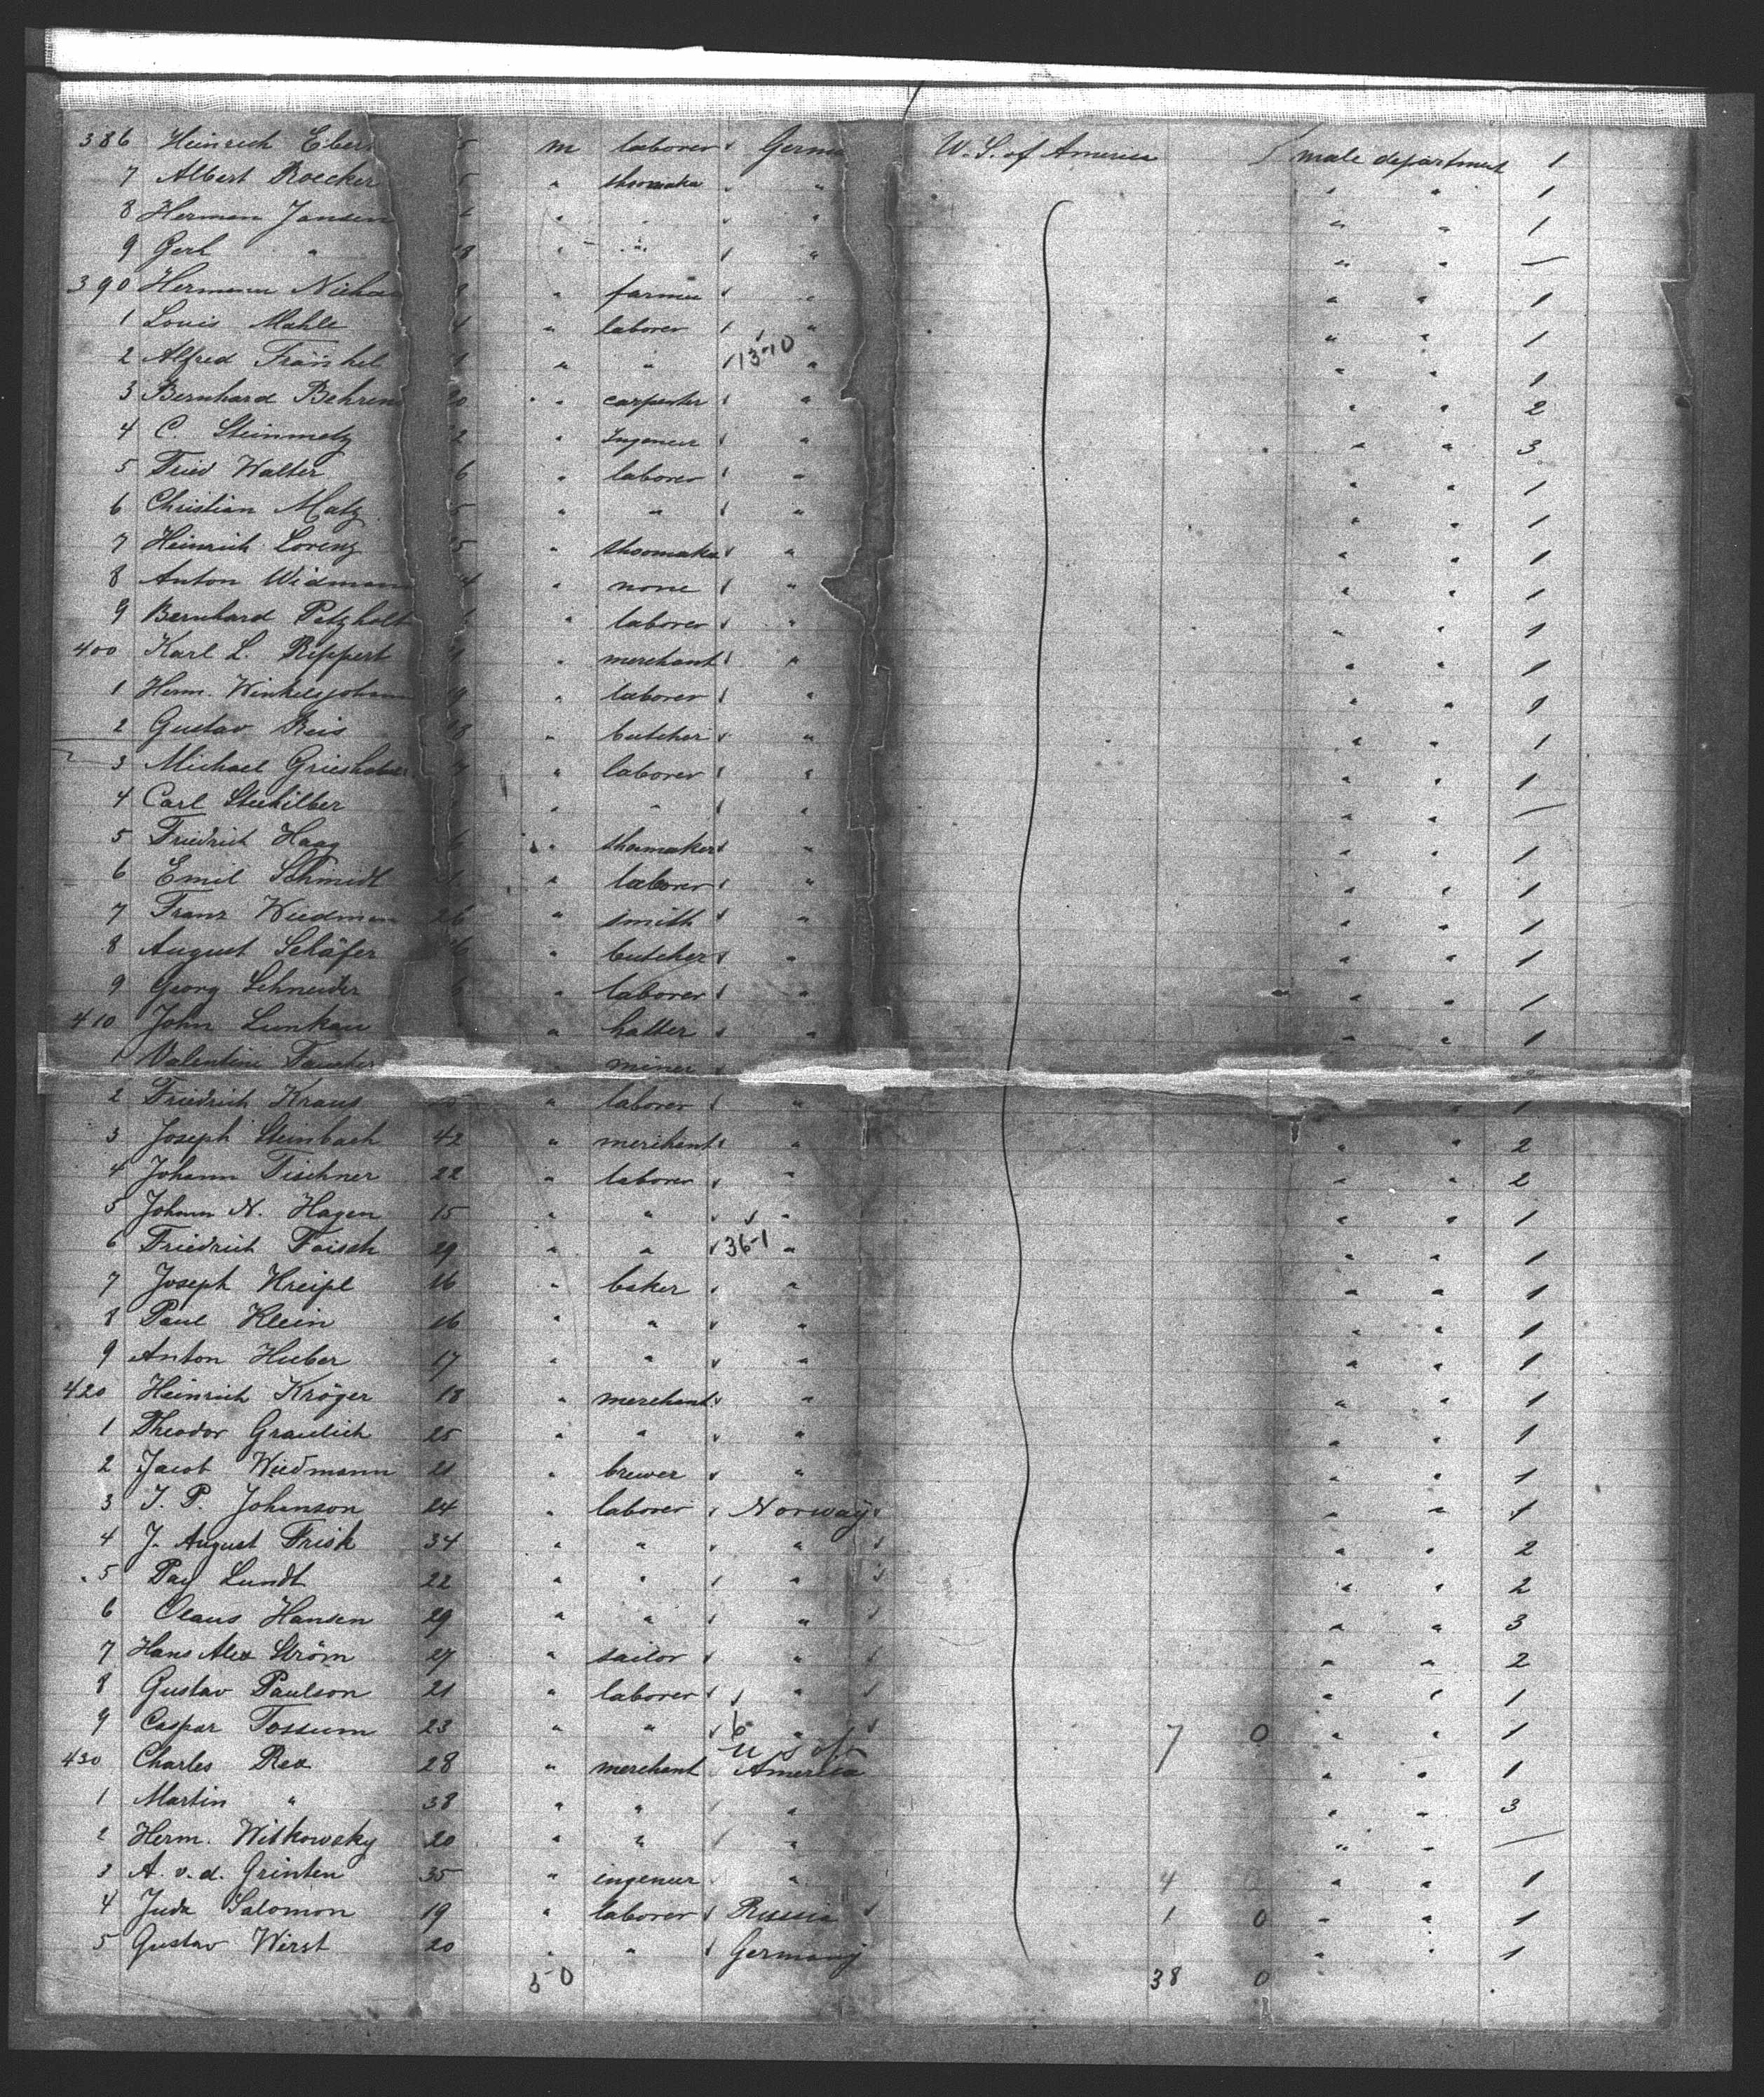 386 Heinrich Eiber 5 m laborer Germa U. S. of America male department 1
7 Albert Roecker 5 " shoomaka " " " 1
8 Herman Jansen " " " " " 1
9 Gerh " 8 " " " " " —
390 Hermann Niehau " farmer " " " 1
1 Louis Mahle 4 " laborer " " " 1
2 Alfred Fränkel " " 13-10 " " " 1
3 Bernhard Behren 20 " carpenter " " " 2
4 C. Steinmetz 2 " Ingeneur " " " 3
5 Fried Walter 6 " laborer " " " 1
6 Christian Matz 5 " " " " " 1
7 Heinrich Lorenz 5 " shoomaka " " " 1
8 Anton Widmann 4 " none " " " 1
9 Bernhard Petzholt " laborer " " " 1
400 Karl L. Rippert " merchant " " " 1
1 Herm. Winkeljohann 19 " laborer " " " 1
2 Gustav Reis 8 " butcher " " " 1
3 Michael Grieshaber " laborer " " " 1
4 Carl " " " " " —
5 Friedrich Haag 6 " shoemaker " " " 1
6 Emil Schmidt " laborer " " " 1
7 Franz Wiedman 26 " smith " " " 1
8 August Schäfer 6 " butcher " " " 1
9 Georg Schneider 6 " laborer " " " 1
410 John Lunkau " hatter " " " 1
1 Valentin miner
2 Friedrich Kraus " laborer " " " 1
3 Joseph Steinbach 42 " merchant " " " 2
4 Johann Tischner 22 " laborer " " " 2
5 Johann N. Hagen 15 " " " " " 1
6 Friedrich Foisch 29 " " 36-1 " " " 1
7 Joseph Kreipl 16 " baker " " " 1
8 Paul Klein 16 " " " " " 1
9 Anton Huber 17 " " " " " 1
420 Heinrich Kröger 18 " merchant " " " 1
1 Theodor Graulich 25 " " " " " 1
2 Jacob Wiedmann 21 " brewer " " " 1
3 J. P. Johanson 24 " laborer Norway " " 1
4 J. August Frisk 34 " " " " " 2
5 Pay Lundt 22 " " " " " 2
6 Claus Hansen 29 " " " " " 3
7 Hans Alex Ström 27 " sailor " " " 2
8 Gustav Paulson 21 " laborer " " " 1
9 Caspar Tossum 23 " " 6 " 7 0 " " 1
430 Charles Rex 28 " merchant U S of America " " 1
1 Martin " 38 " " " " " 3
2 Herm. Witkowsky 20 " " " " " —
3 A. v. d. Grinten 35 " ingeneur " 4 " " 1
4 Juda Salomon 19 " laborer Russia 1 0 " " 1
5 Gustav Wirst 20 " " Germany " " 1
50 38 0